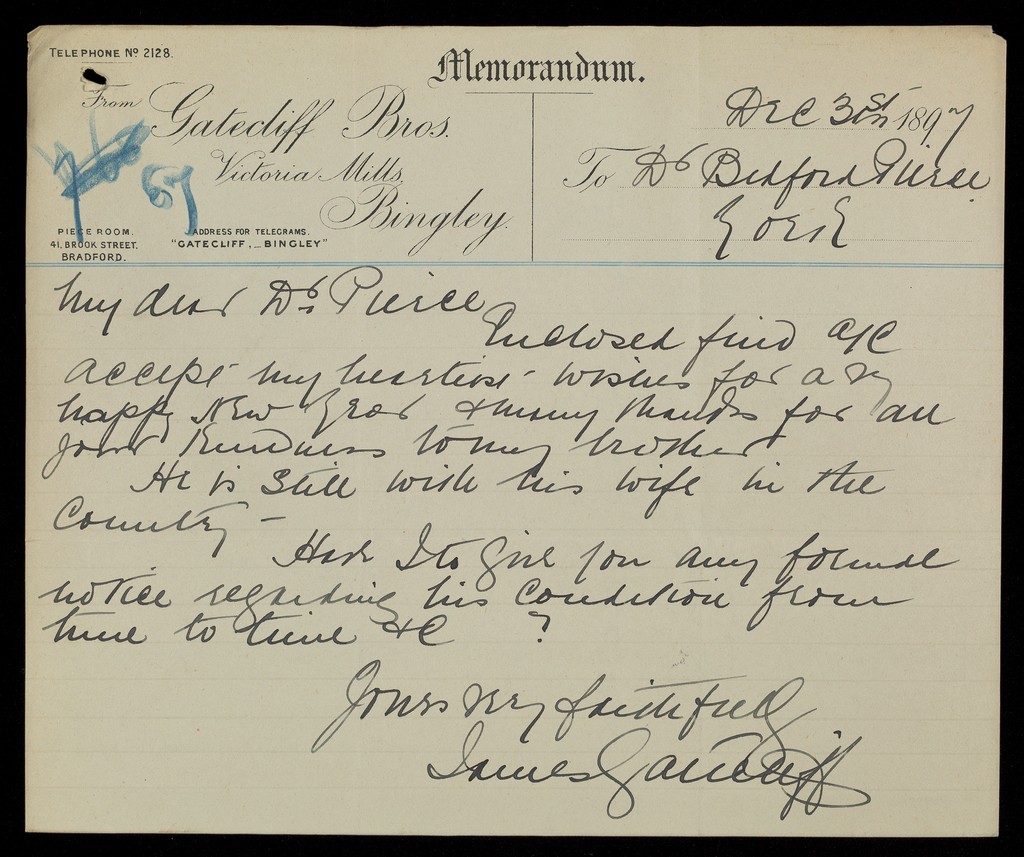 TELEPHONE Nº 2128.
Memorandum.
From
Gatecliff Bros.
Victoria Mills,
Bingley.
67
PIECE ROOM.
41, BROOK STREET,
BRADFORD.
ADDRESS FOR TELEGRAMS.
"GATECLIFF, BINGLEY"
Dec 31st 1897
To Dr Bedford Pierce
York
My dear Dr Pierce
Enclosed find a/c
accept my heartiest wishes for a vy
happy New Year & many thanks for all
your kindness to my brother
He is still with his wife in the
Country –
Have I to give you any formal
notice regarding his condition from
time to time &c ?
Yours very faithfully
James Gatecliff